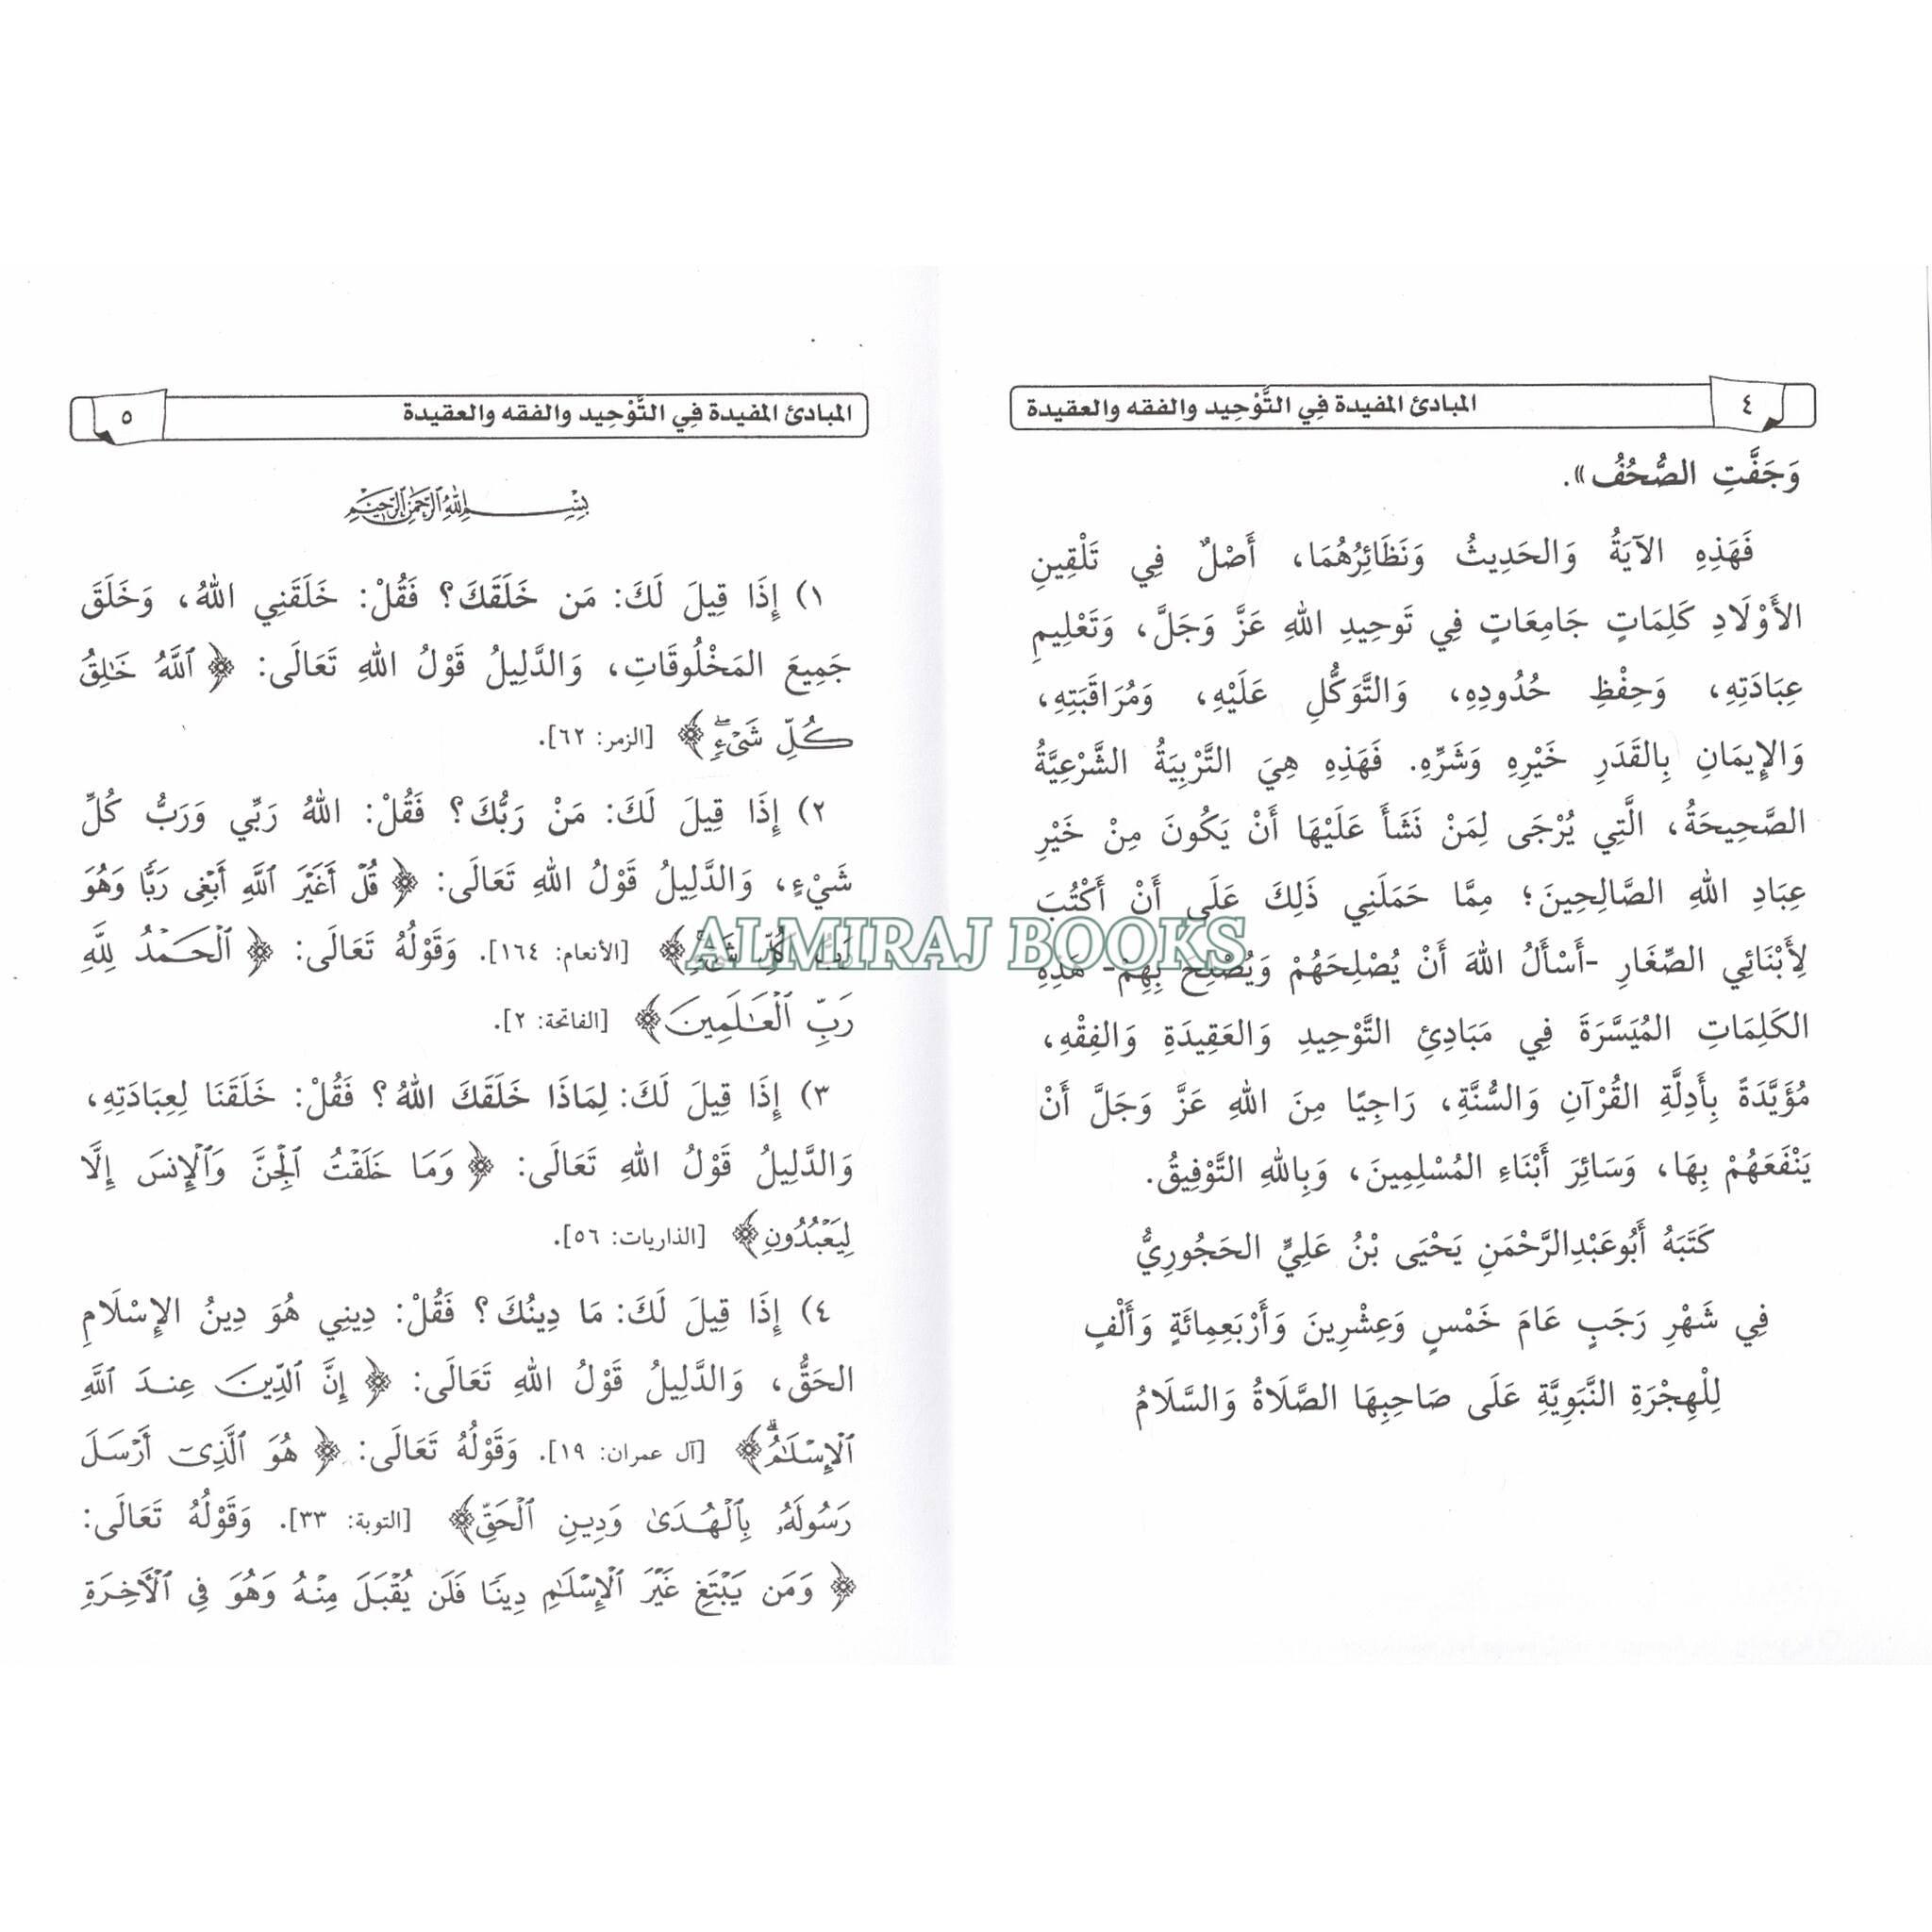 ٤ المبادئ المفيدة فِي التَّوْحِيد والفقه والعقيدة
وَجَفَّتِ الصُّحُفُ».
فَهَذِهِ الآيَةُ وَالحَدِيثُ وَنَظَائِرُهُمَا، أَصْلٌ فِي تَلْقِينِ
الأَوْلَادِ كَلِمَاتٍ جَامِعَاتٍ فِي تَوحِيدِ اللهِ عَزَّ وَجَلَّ، وَتَعْلِيمِ
عِبَادَتِهِ، وَحِفْظِ حُدُودِهِ، وَالتَّوَكُّلِ عَلَيْهِ، وَمُرَاقَبَتِهِ،
وَالإِيمَانِ بِالقَدَرِ خَيْرِهِ وَشَرِّهِ. فَهَذِهِ هِيَ التَّرْبِيَةُ الشَّرْعِيَّةُ
الصَّحِيحَةُ، الَّتِي يُرْجَى لِمَنْ نَشَأَ عَلَيْهَا أَنْ يَكُونَ مِنْ خَيْرِ
عِبَادِ اللهِ الصَّالِحِينَ؛ مِمَّا حَمَلَنِي ذَلِكَ عَلَى أَنْ أَكْتُبَ
لِأَبْنَائِي الصِّغَارِ -أَسْأَلُ اللهَ أَنْ يُصْلِحَهُمْ وَيُصْلِحَ بِهِمْ- هَذِهِ
الكَلِمَاتِ المُيَسَّرَةَ فِي مَبَادِئِ التَّوْحِيدِ وَالعَقِيدَةِ وَالفِقْهِ،
مُؤَيَّدَةً بِأَدِلَّةِ القُرْآنِ وَالسُّنَّةِ، رَاجِيًا مِنَ اللهِ عَزَّ وَجَلَّ أَنْ
يَنْفَعَهُمْ بِهَا، وَسَائِرَ أَبْنَاءِ المُسْلِمِينَ، وَبِاللهِ التَّوْفِيقُ.
كَتَبَهُ أَبُوعَبْدِالرَّحْمَنِ يَحْيَى بْنُ عَلِيٍّ الحَجُورِيُّ
فِي شَهْرِ رَجَبٍ عَامَ خَمْسٍ وَعِشْرِينَ وَأَرْبَعِمِائَةٍ وَأَلْفٍ
لِلْهِجْرَةِ النَّبَوِيَّةِ عَلَى صَاحِبِهَا الصَّلَاةُ وَالسَّلَامُ
المبادئ المفيدة فِي التَّوْحِيد والفقه والعقيدة ٥
بِسْمِ اللهِ الرَّحْمَنِ الرَّحِيمِ
١) إِذَا قِيلَ لَكَ: مَن خَلَقَكَ؟ فَقُلْ: خَلَقَنِي اللهُ، وَخَلَقَ
جَمِيعَ المَخْلُوقَاتِ، وَالدَّلِيلُ قَوْلُ اللهِ تَعَالَى: ﴿ ٱللَّهُ خَٰلِقُ
كُلِّ شَىْءٍۖ ﴾ [الزمر: ٦٢].
٢) إِذَا قِيلَ لَكَ: مَنْ رَبُّكَ؟ فَقُلْ: اللهُ رَبِّي وَرَبُّ كُلِّ
شَيْءٍ، وَالدَّلِيلُ قَوْلُ اللهِ تَعَالَى: ﴿ قُلْ أَغَيْرَ ٱللَّهِ أَبْغِى رَبًّا وَهُوَ
رَبُّ كُلِّ شَىْءٍ﴾ [الأنعام: ١٦٤]. وَقَوْلُهُ تَعَالَى: ﴿ ٱلْحَمْدُ لِلَّهِ
رَبِّ ٱلْعَٰلَمِينَ ﴾ [الفاتحة: ٢].
٣) إِذَا قِيلَ لَكَ: لِمَاذَا خَلَقَكَ اللهُ؟ فَقُلْ: خَلَقَنَا لِعِبَادَتِهِ،
وَالدَّلِيلُ قَوْلُ اللهِ تَعَالَى: ﴿ وَمَا خَلَقْتُ ٱلْجِنَّ وَٱلْإِنسَ إِلَّا
لِيَعْبُدُونِ﴾ [الذاريات: ٥٦].
٤) إِذَا قِيلَ لَكَ: مَا دِينُكَ؟ فَقُلْ: دِينِي هُوَ دِينُ الإِسْلَامِ
الحَقُّ، وَالدَّلِيلُ قَوْلُ اللهِ تَعَالَى: ﴿ إِنَّ ٱلدِّينَ عِندَ ٱللَّهِ
ٱلْإِسْلَٰمُۗ﴾ [آل عمران: ١٩]. وَقَوْلُهُ تَعَالَى: ﴿ هُوَ ٱلَّذِىٓ أَرْسَلَ
رَسُولَهُۥ بِٱلْهُدَىٰ وَدِينِ ٱلْحَقِّ﴾ [التوبة: ٣٣]. وَقَوْلُهُ تَعَالَى:
﴿ وَمَن يَبْتَغِ غَيْرَ ٱلْإِسْلَٰمِ دِينًا فَلَن يُقْبَلَ مِنْهُ وَهُوَ فِى ٱلْءَاخِرَةِ
ALMIRAJ BOOKS